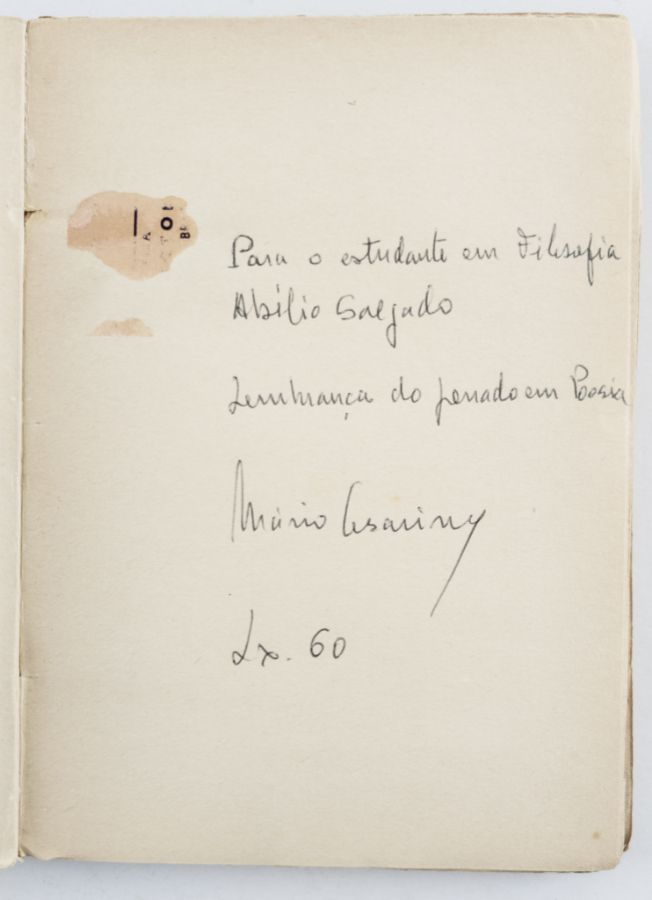 Para o estudante em Filosofia
Abílio Salgado
Lembrança do penado em Poesia
Mário Cesariny
Lx. 60